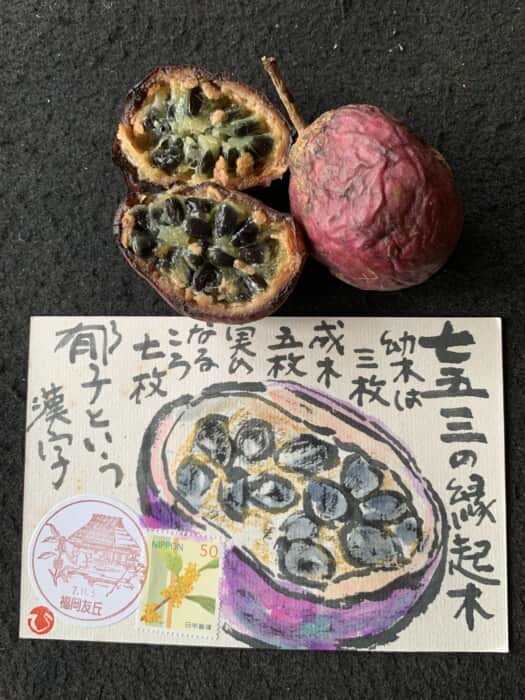 七五三の縁起木
幼木は
三枚
成木
五枚
実の
なる
ころ
七枚
郁子という
漢字
NIPPON 50
日本郵便
7.11.5
福岡友丘